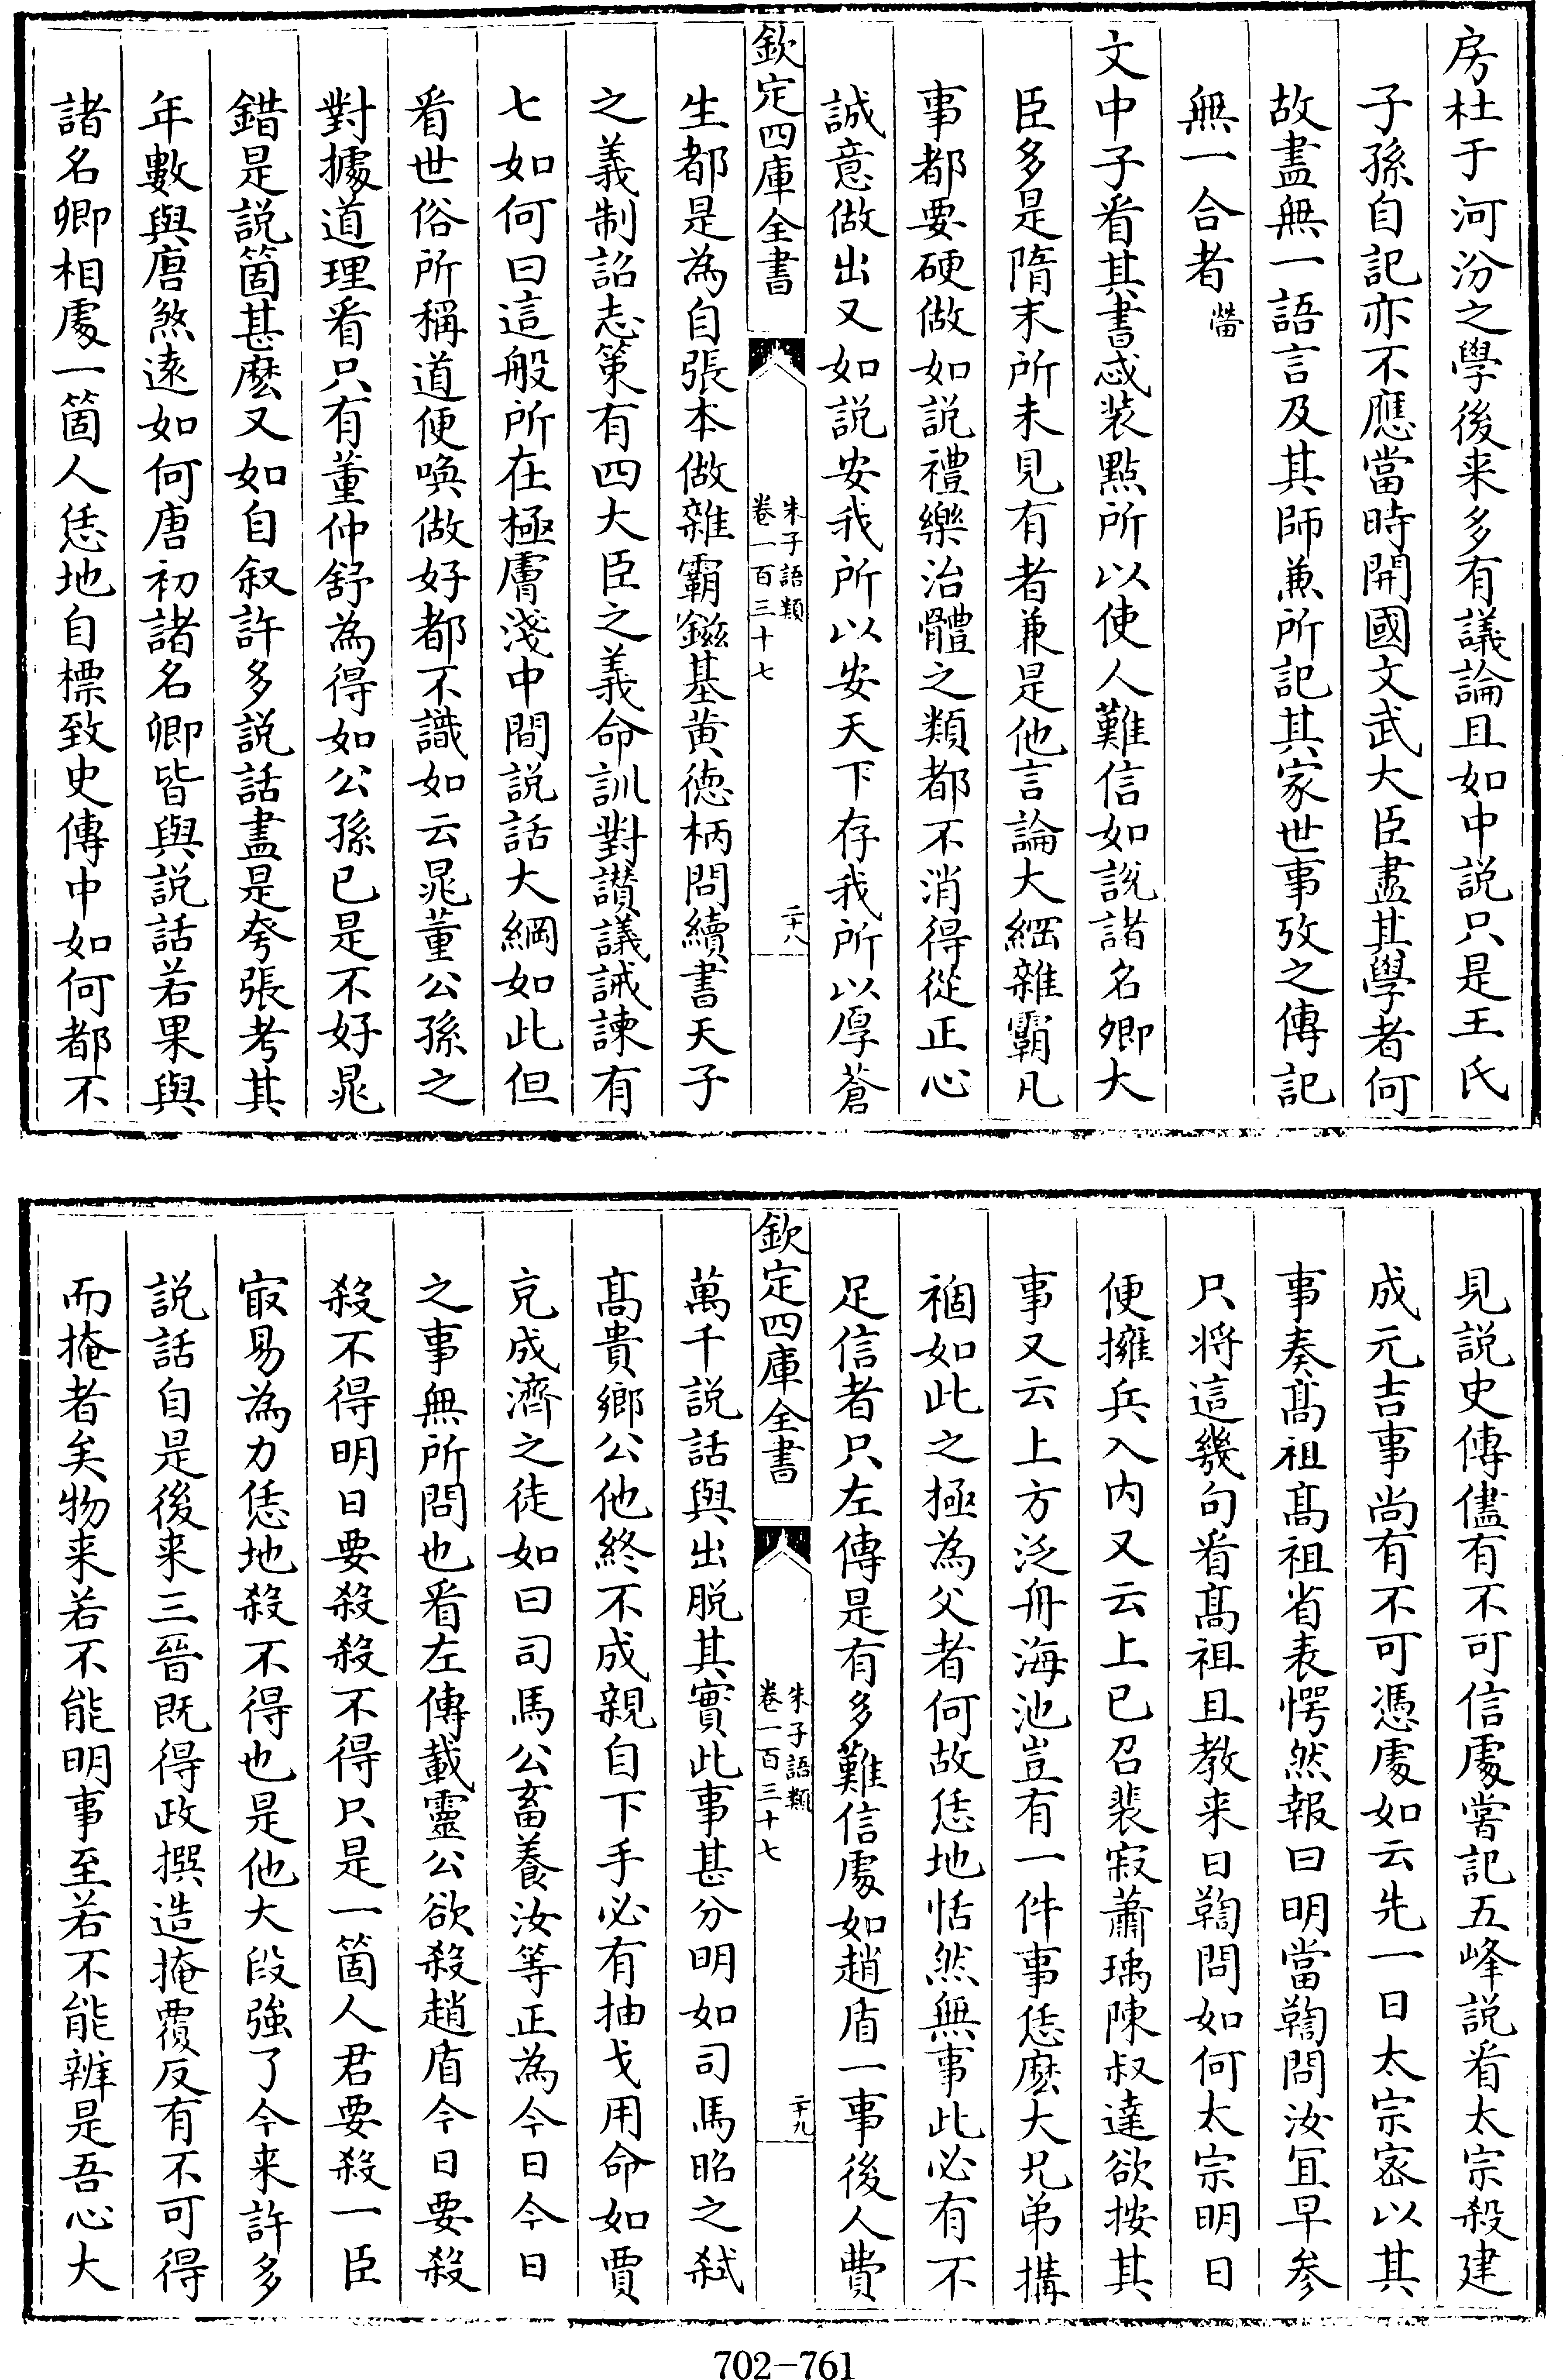 房杜于河汾之學後来多有議論且如中説只是王氏
子孫自記亦不應當時開國文武大臣盡其學者何
故盡無一語言及其師兼所記其家世事攷之傳記
無一合者㽦
文中子㸔其書忒装點所以使人難信如説諸名卿大
臣多是隋末所未見有者兼是他言論大綱雜霸凡
事都要硬做如説禮樂治體之類都不消得從正心
誠意做出又如説安我所以安天下存我所以厚蒼
欽定四庫全書
朱子語類
卷一百三十七
二十八
生都是為自張本做雜霸鎡基黄徳柄問續書天子
之義制詔志策有四大臣之義命訓對讃議誡諫有
七如何曰這般所在極膚淺中間説話大綱如此但
㸔世俗所稱道便喚做好都不識如云晁董公孫之
對據道理㸔只有董仲舒為得如公孫已是不好晁
錯是説箇甚麽又如自叙許多説話盡是夸張考其
年數與唐煞逺如何唐初諸名卿皆與説話若果與
諸名卿相處一箇人恁地自標致史傳中如何都不
見説史傳儘有不可信處嘗記五峰説㸔太宗殺建
成元吉事尚有不可憑處如云先一日太宗宻以其
事奏髙祖髙祖省表愕然報曰明當鞫問汝宜早参
只将這幾句㸔髙祖且教来日鞫問如何太宗明日
便擁兵入内又云上已召裴寂蕭瑀陳叔達欲按其
事又云上方泛舟海池豈有一件事恁麽大兄弟搆
禍如此之極為父者何故恁地恬然無事此必有不
足信者只左傳是有多難信處如趙盾一事後人費
欽定四庫全書
朱子語類
卷一百三十七
二十九
萬千説話與出脱其實此事甚分明如司馬昭之弑
髙貴鄉公他終不成親自下手必有抽戈用命如賈
充成濟之徒如曰司馬公畜養汝等正為今日今日
之事無所問也㸔左傳載靈公欲殺趙盾今日要殺
殺不得明日要殺殺不得只是一箇人君要殺一臣
㝡易為力恁地殺不得也是他大段強了今来許多
説話自是後来三晉既得政撰造掩覆反有不可得
而掩者矣物来若不能明事至若不能辨是吾心大
702-761